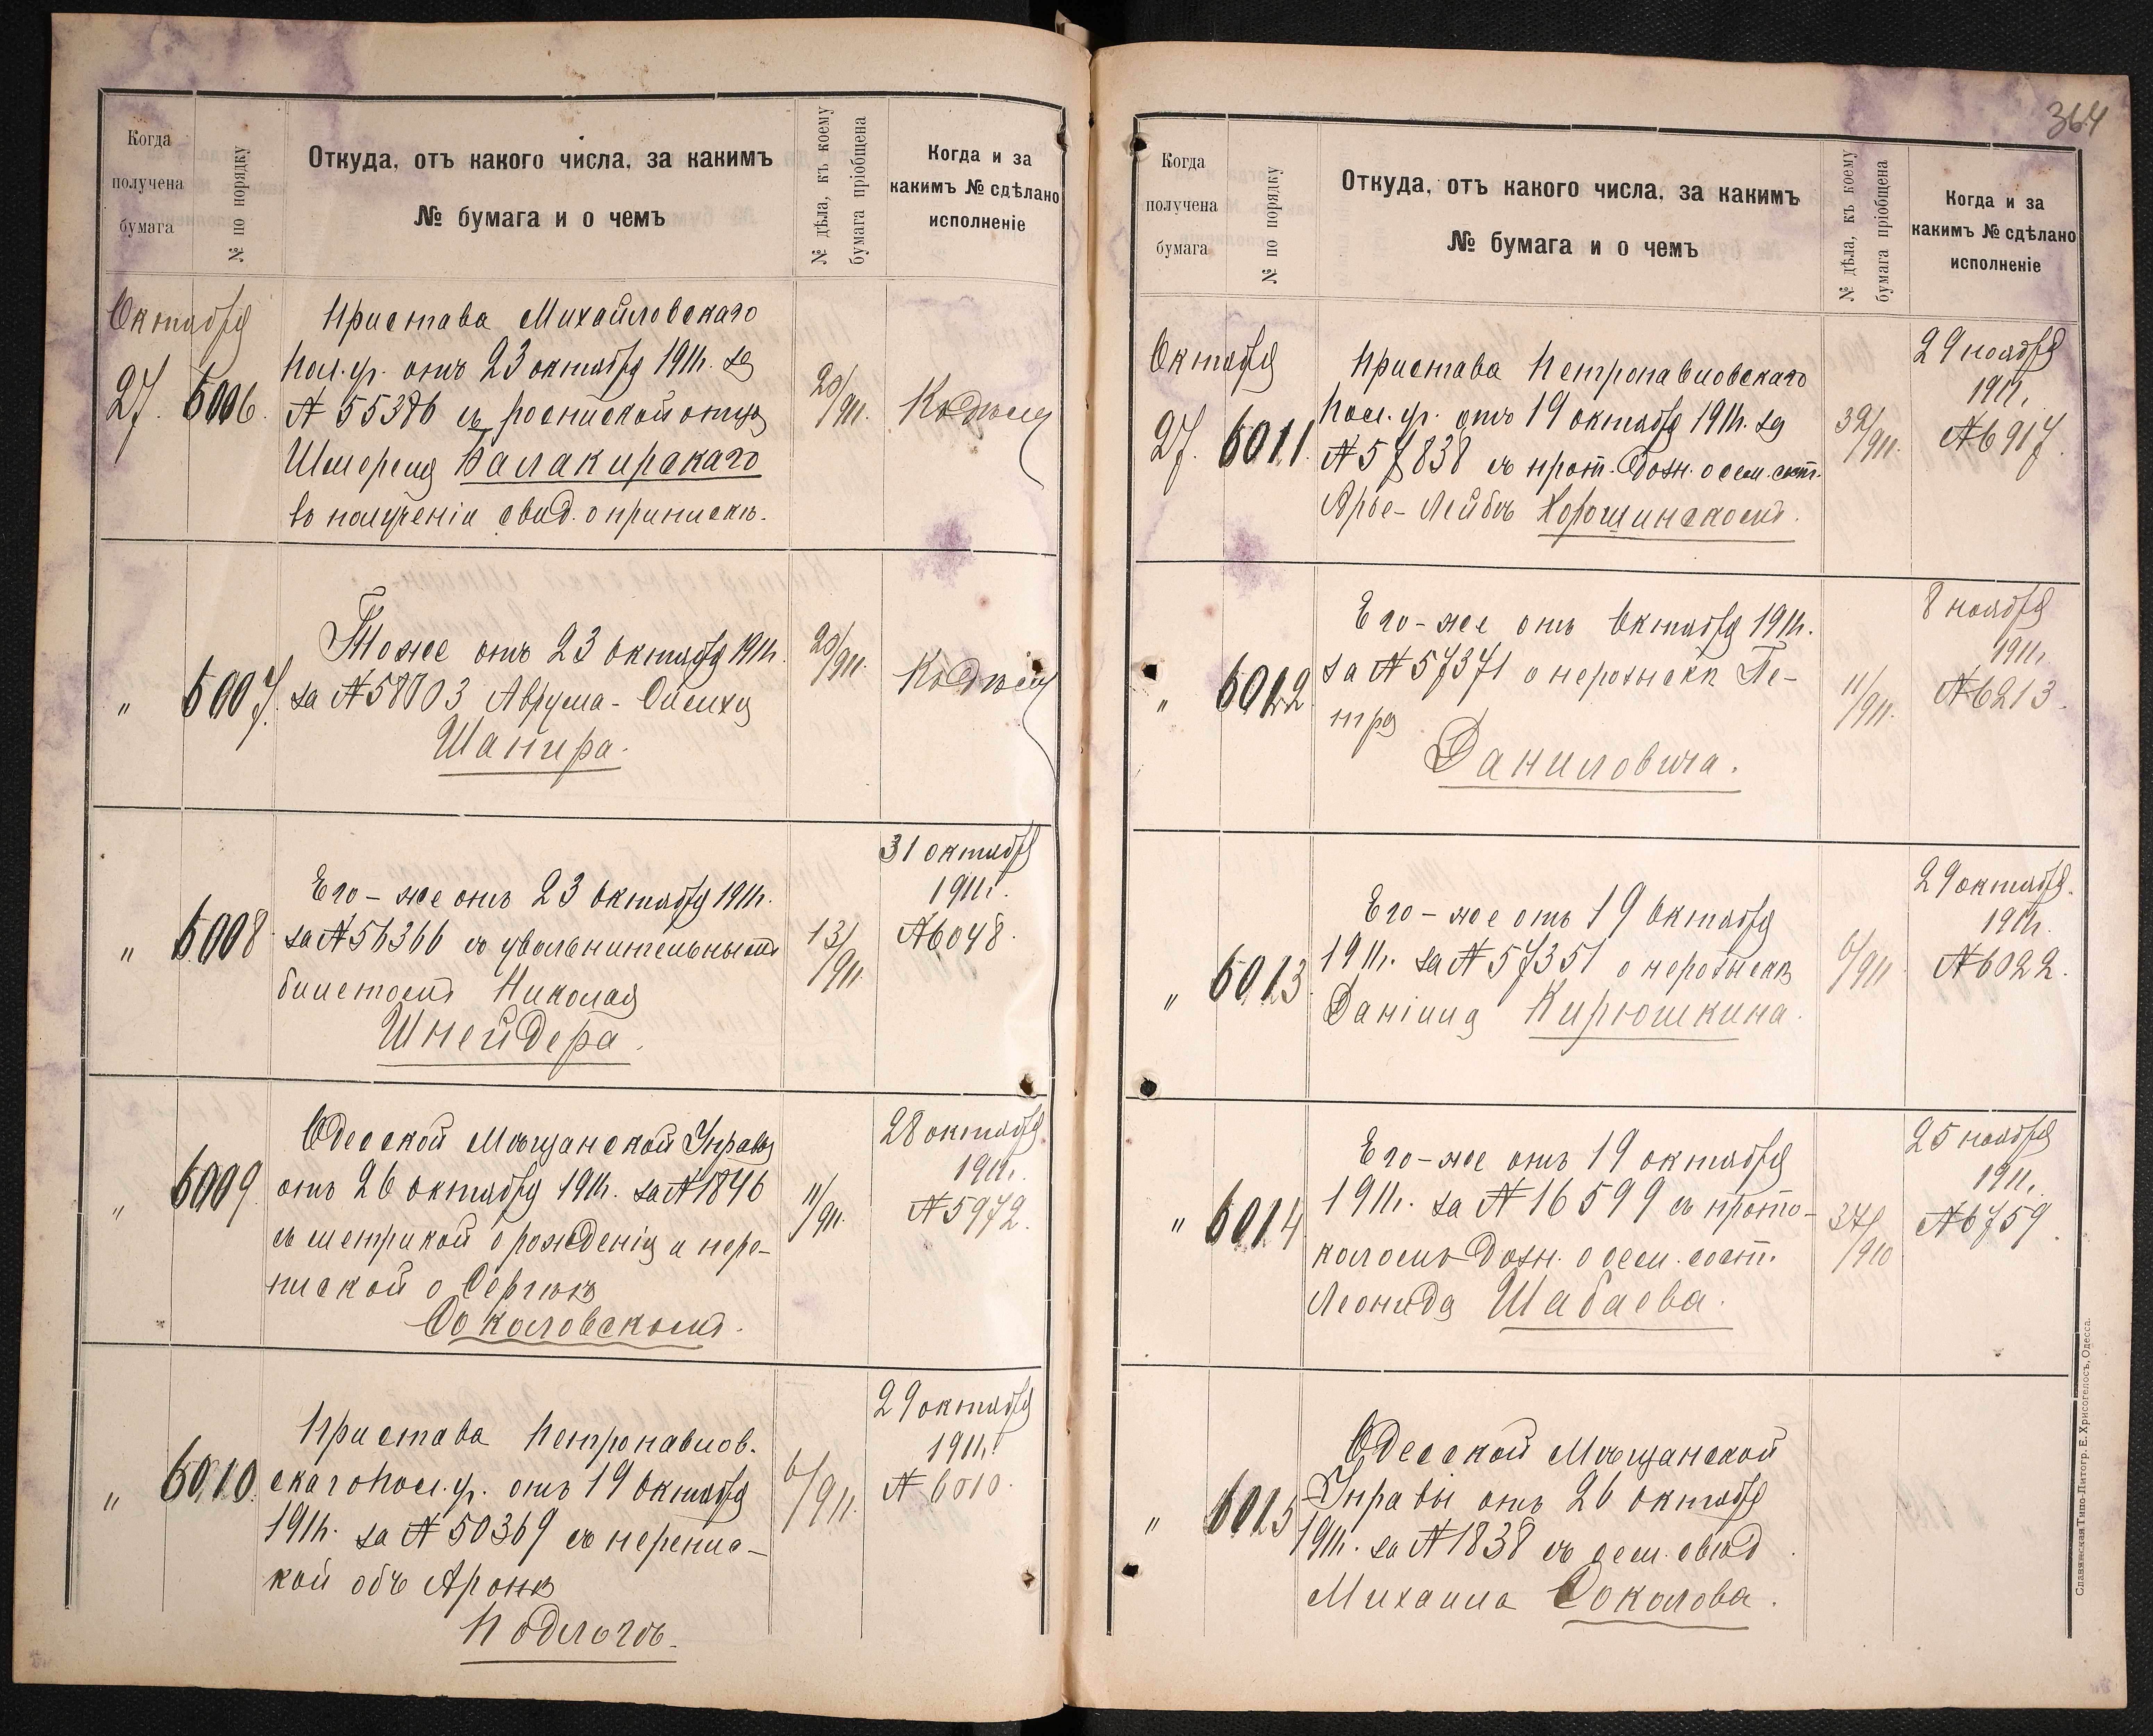 Когда
получена
бумага
№ по порядку
Откуда, отъ какого числа, за какимъ
№ бумага и о чемъ
№ дѣла, къ коему
бумага пріобщена
Когда и за
какимъ № сдѣлано
исполненіе
Октября
27. 6006.
Пристава Михайловскаго
пол. уч. отъ 23 октября 1911г. за
№ 55386 съ роспиской отца
Шмереля Балакирскаго
въ полученіи свид. о припискѣ.
20/911.
Къ дѣлу
" 6007.
Тоже отъ 23 октября 1911г.
за № 58703 Аврума-Ойсиха
Шапира.
20/911.
Къ дѣлу
" 6008
Его-же отъ 23 октября 1911г.
за № 56366 съ увольнительнымъ
билетомъ Николая
Шнейдера.
131/911.
31 октября
1911г.
№ 6048.
" 6009
Одесской Мѣщанской Управы
отъ 26 октября 1911г. за № 1846
съ метрикой о рожденіи и пере-
пиской о Сергѣѣ
Соколовскомъ.
11/911.
28 октября
1911г.
№ 5972.
" 6010.
Пристава Петропавлов.
скаго пол. уч. отъ 19 октября
1911г. за № 50369 съ перепис-
кой объ Аронѣ
Подлогъ.
6/911.
29 октября
1911г.
№ 6010.
364
Когда
получена
бумага
№ по порядку
Откуда, отъ какого числа, за какимъ
№ бумага и о чемъ
№ дѣла, къ коему
бумага пріобщена
Когда и за
какимъ № сдѣлано
исполненіе
Октября
27. 6011.
Пристава Петропавловскаго
пол. уч. отъ 19 октября 1911г. за
№ 57838 съ прот. дозн. о сем. сост.
Арье-Лейбѣ Хорошинскомъ.
32/911.
29 ноября
1911г.
№ 6917.
" 6012
Его-же отъ Октября 1911г.
за № 57371 о нерозыскѣ Пе-
тра
Даниловича.
11/911.
8 ноября
1911г.
№ 6213.
" 6013
Его-же отъ 19 Октября
1911г. за № 57351 о нерозыскѣ
Даніила Кирюшкина.
6/911
29 октября.
1911г.
№ 6022.
" 6014
Его-же отъ 19 октября
1911г. за № 16599 съ прото-
коломъ дозн. о сем. сост.
Леонида Шабаева.
371/910
25 ноября
1911г.
№ 6759.
" 6015
Одесской Мѣщанской
Управы отъ 26 октября
1911г. за № 1838 съ сем. свид.
Михаила Соколова.
Славянская Типо-Литогр. Е. Хрисогелосъ, Одесса.